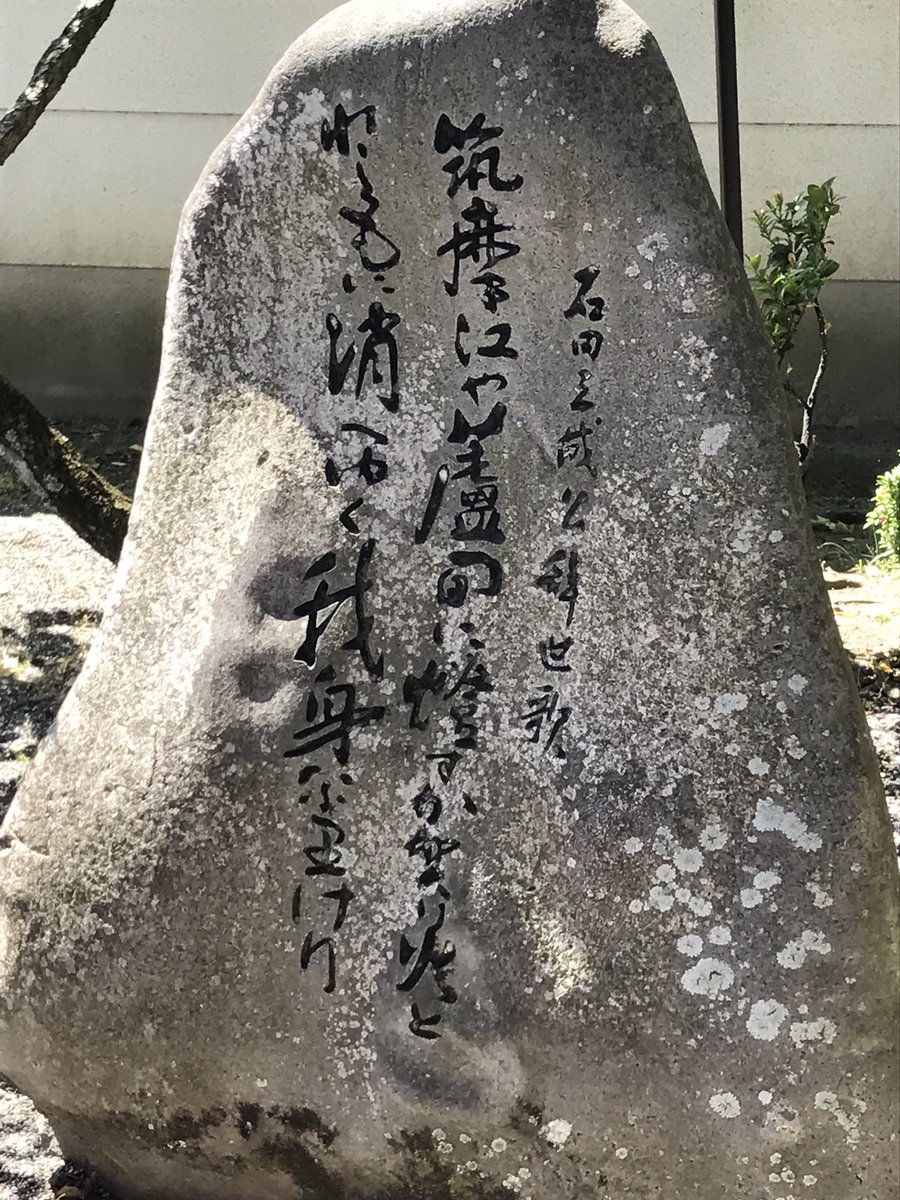 石田三成公辞世歌
筑摩江や蘆間に燈すか賀り火と
ともに消へゆく我身なりけり